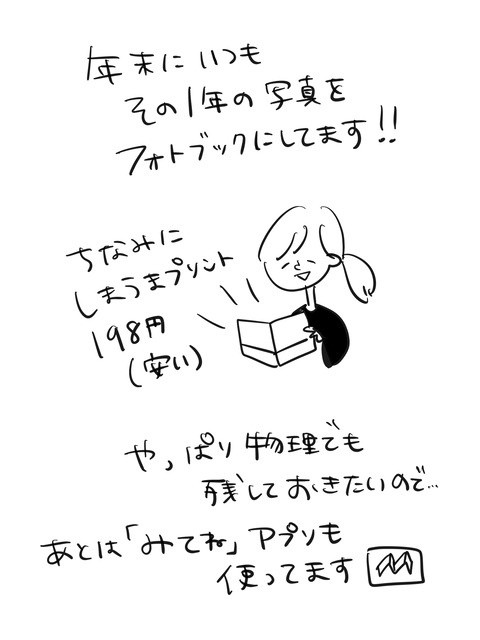 年末にいつも
その1年の写真を
フォトブックにしてます!!
ちなみに
しまうまプリント
198円
(安い)
やっぱり物理でも
残しておきたいので…
あとは「みてね」アプリも
使ってます